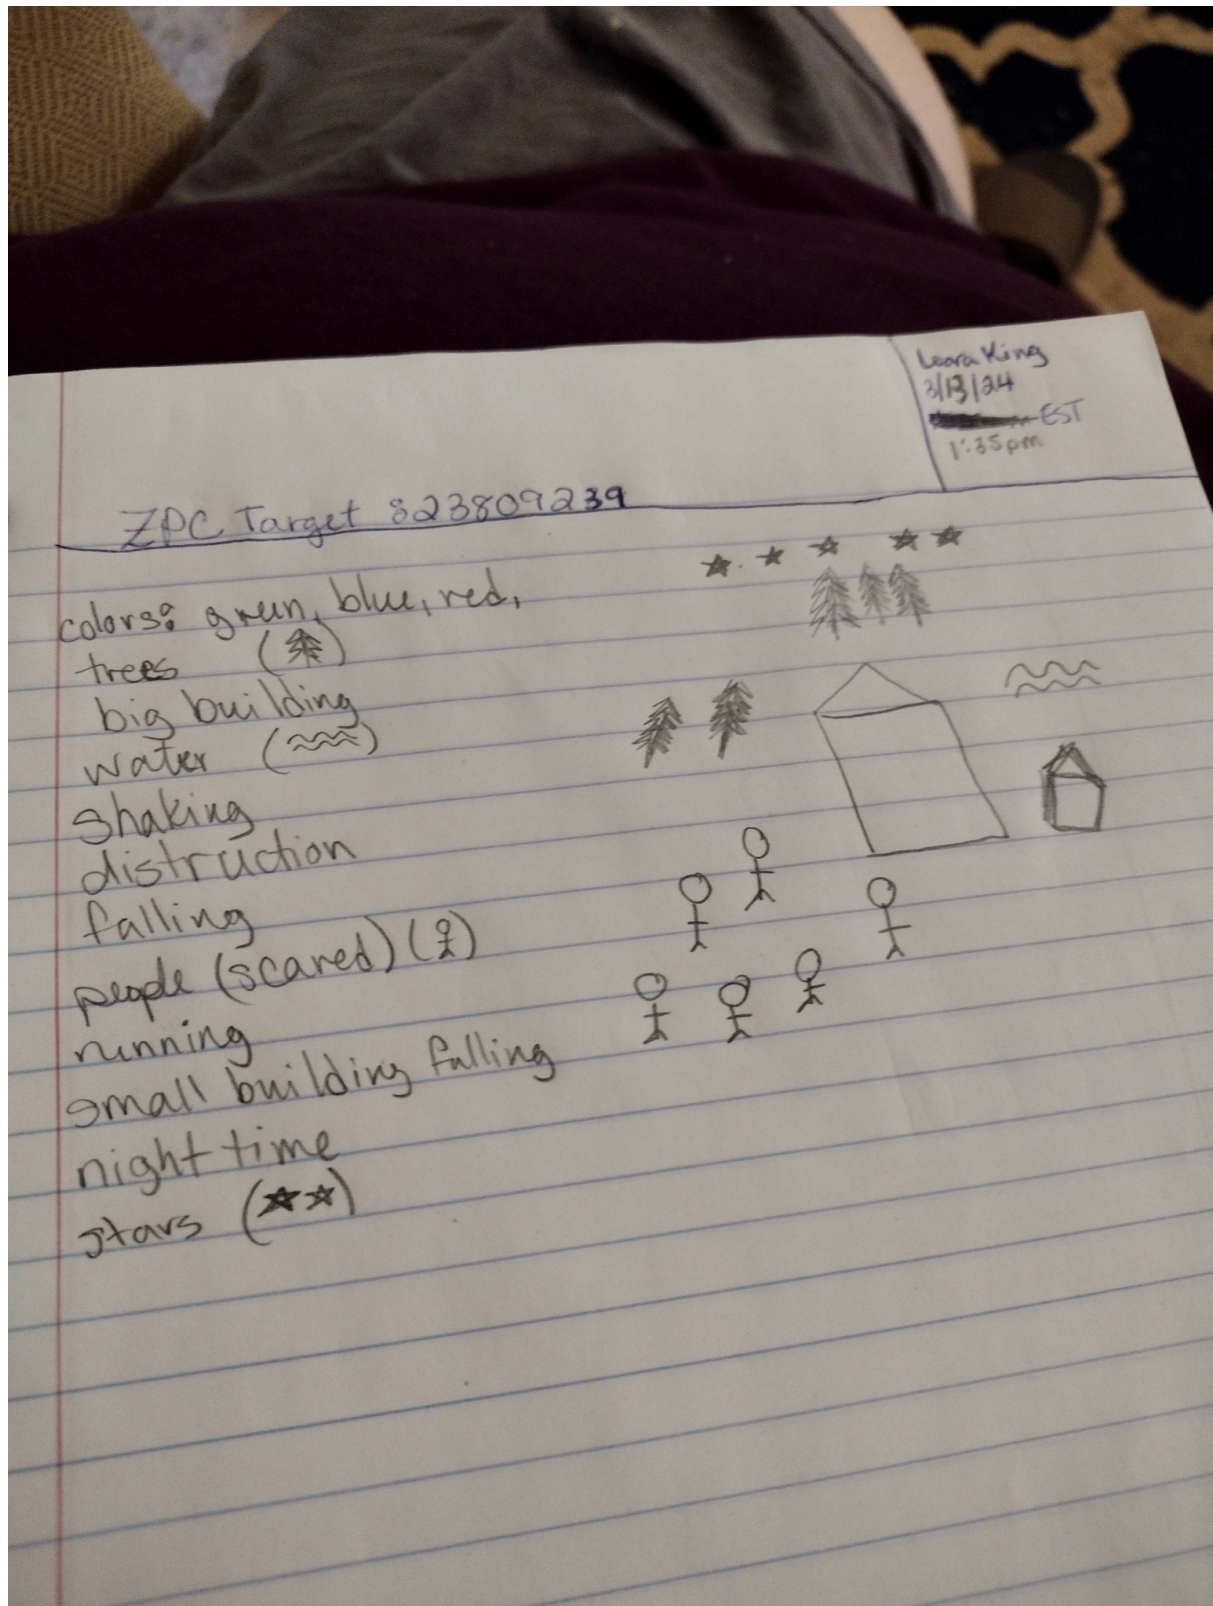 Leara King
3/13/24
EST
1:35pm
ZPC Target 823809239
colors: green, blue, red,
trees ( )
big building
water ( )
shaking
distruction
falling
people (scared) ( )
running
small building falling
night time
stars ( )